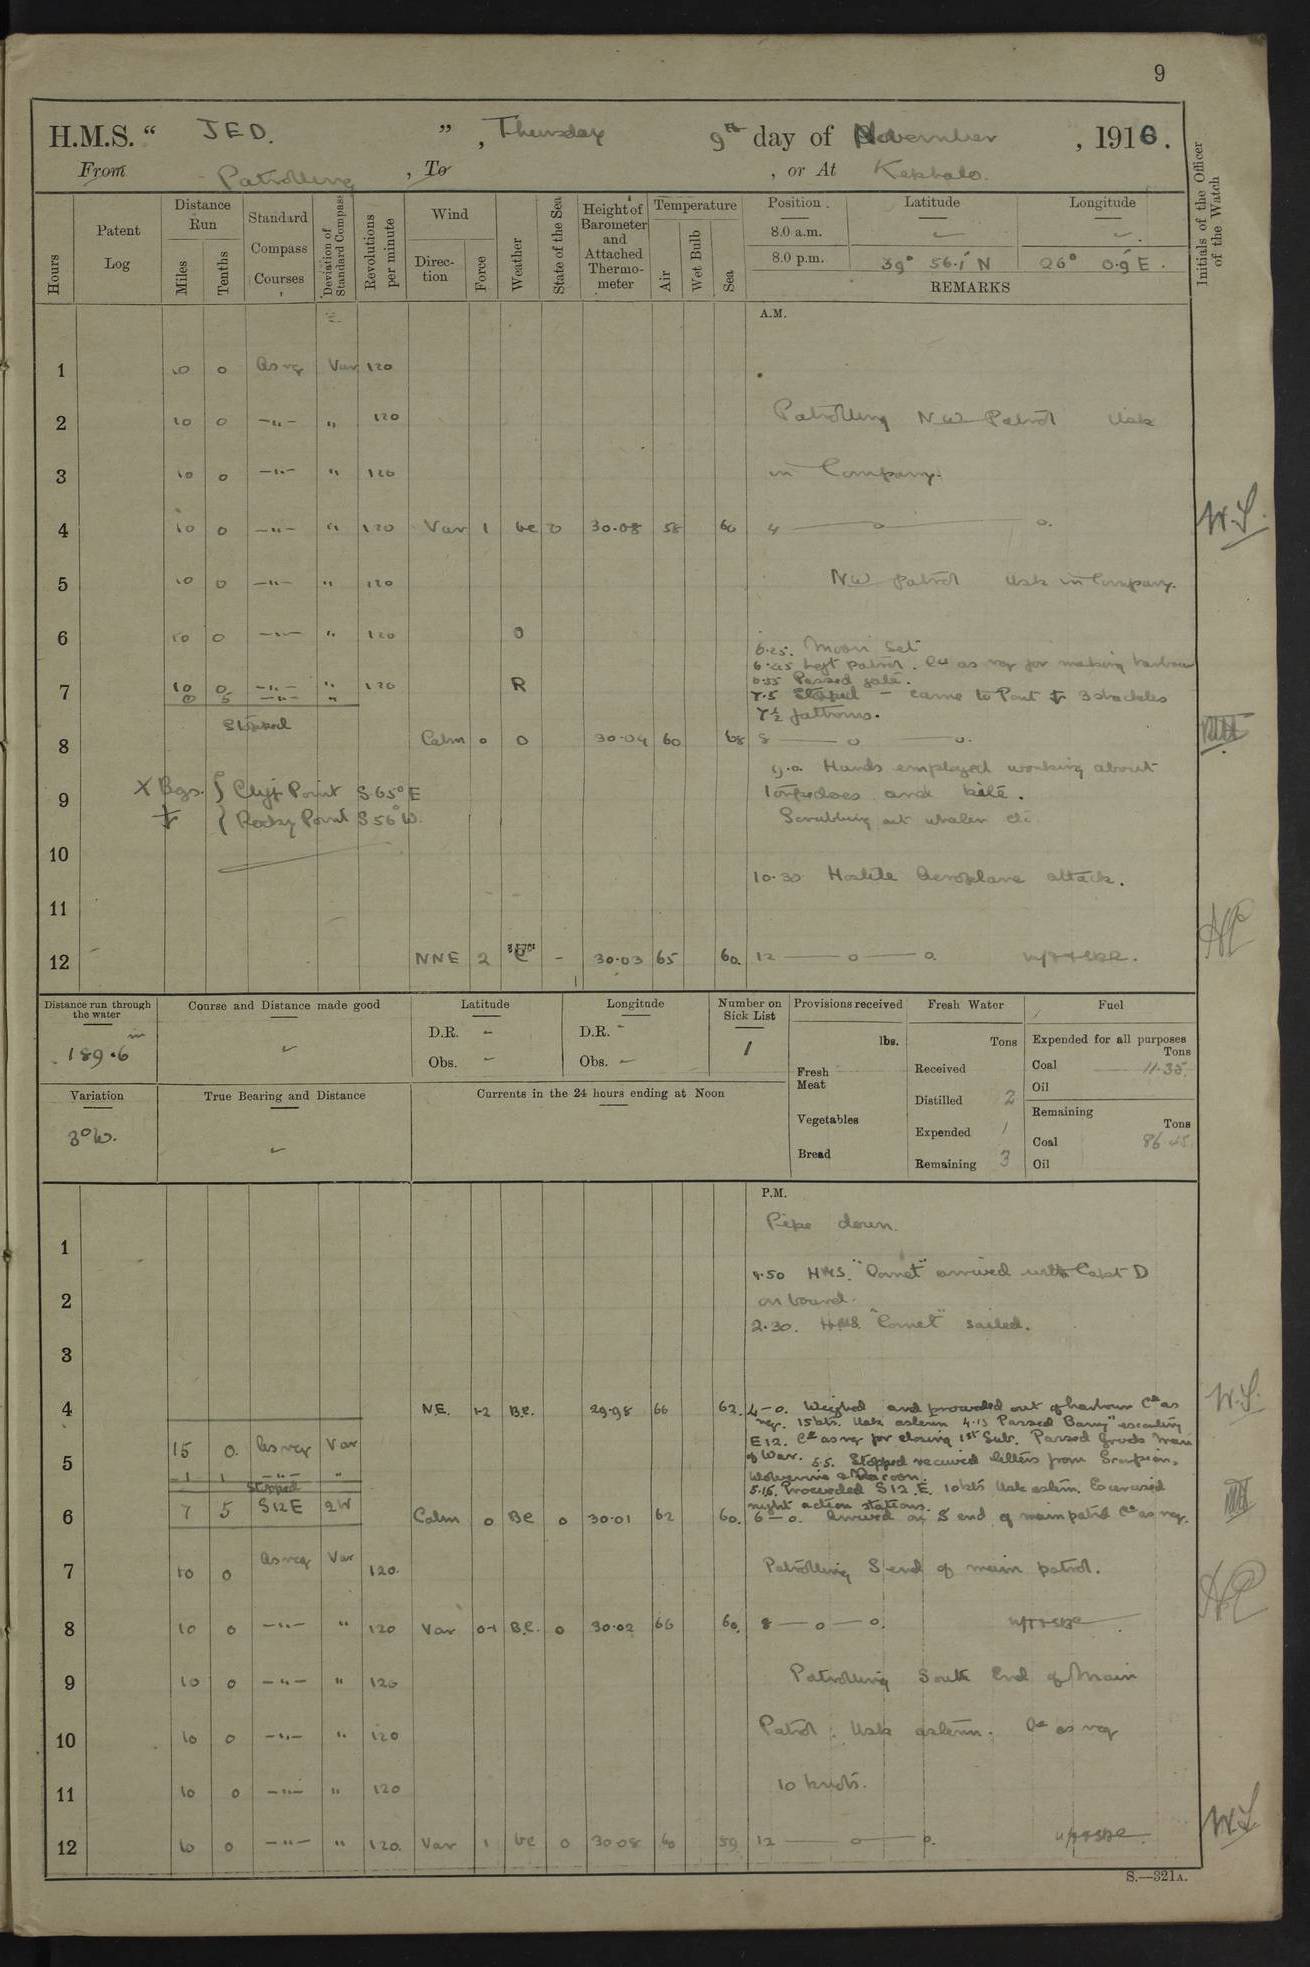 9
H.M.S. “ JED. ” , Thursday 9th day of November , 1916.
From Patrolling , To , or At Kephalo.
Hours
Patent Log
Distance Run
Miles
Tenths
Standard Compass Courses
Deviation of Standard Compass
Revolutions per minute
Wind
Direction
Force
Weather
State of the Sea
Height of Barometer and Attached Thermometer
Temperature
Air
Wet Bulb
Sea
Position Latitude Longitude
8.0 a.m.
8.0 p.m. 39° 56.1' N 26° 0.9' E.
REMARKS
Initials of the Officer of the Watch
A.M.
1 10 0 As req Var 120
2 10 0 -"- " 120 Patrolling NW Patrol Usk
3 10 0 -"- " 120 in Company.
4 10 0 -"- " 120 Var 1 bc 0 30.08 58 60 4 — o — o. W.S.
5 10 0 -"- " 120 NW patrol Usk in Company.
6 10 0 -"- " 120 O
6.25. Moon Set
6.45 Left patrol. Co as req for making harbour
6.55 Passed gate.
7 10 0 -"- " 120 R
0 5 -"- "
7.5 Stopped – came to Port ⚓ 3 shackles
7½ fathoms.
Stopped
8 Calm 0 O 30.04 60 68 8 — o — o.
9.0. Hands employed working about
9 X Bgs. { Cliff Point S 65° E
torpedoes and kite.
⚓ { Rocky Point S 56° W.
Scrubbing out whaler etc
10
10.30 Hostile Aeroplane attack.
11
12 NNE 2 - 30.03 65 60. 12 — o — o.
Distance run through the water
189.6 m
Course and Distance made good
Latitude
D.R. -
Obs. -
Longitude
D.R. -
Obs. -
Number on Sick List
1
Provisions received
lbs.
Fresh Meat
Vegetables
Bread
Fresh Water
Tons
Received
Distilled 2
Expended 1
Remaining 3
Fuel
Expended for all purposes
Tons
Coal 11.35.
Oil
Remaining
Tons
Coal 86.45
Oil
Variation
3° W.
True Bearing and Distance
Currents in the 24 hours ending at Noon
P.M.
Pipe down.
1
1.50 HMS. "Comet" arrived with Capt D
2 on board.
2.30. HMS. "Comet" sailed.
3
4 N.E. 1-2 B.C. 29.98 66 62. 4–0. Weighed and proceeded out of harbour Co as W.S.
req. 15 kts. Usk astern 4.15 Passed "Barry" escorting
15 0. As req Var
E12. Co as req for closing 1st Sub. Passed Greek Man
5 of War. 5.5. Stopped received letters from Scorpion,
1 1 -"- "
Wolverine & Racoon.
Stopped
5.15. Proceeded S 12 E. 10 kts Usk astern. Exercised
7 5 S12E 2W
night action stations.
6 Calm 0 BC 0 30.01 62 60. 6–0. Arrived on S end of main patrol Co as req.
7 10 0 As req Var 120. Patrolling S end of main patrol.
8 10 0 -"- " 120 Var 0-1 B.C. 0 30.02 66 60. 8 — o — o.
9 10 0 -"- " 120 Patrolling South End of Main
10 10 0 -"- " 120 Patrol. Usk astern. Co as req
11 10 0 -"- " 120 10 knots.
12 10 0 -"- " 120. Var 1 bc 0 30.08 60 59 12 — o — o. W.S.
S.—321A.